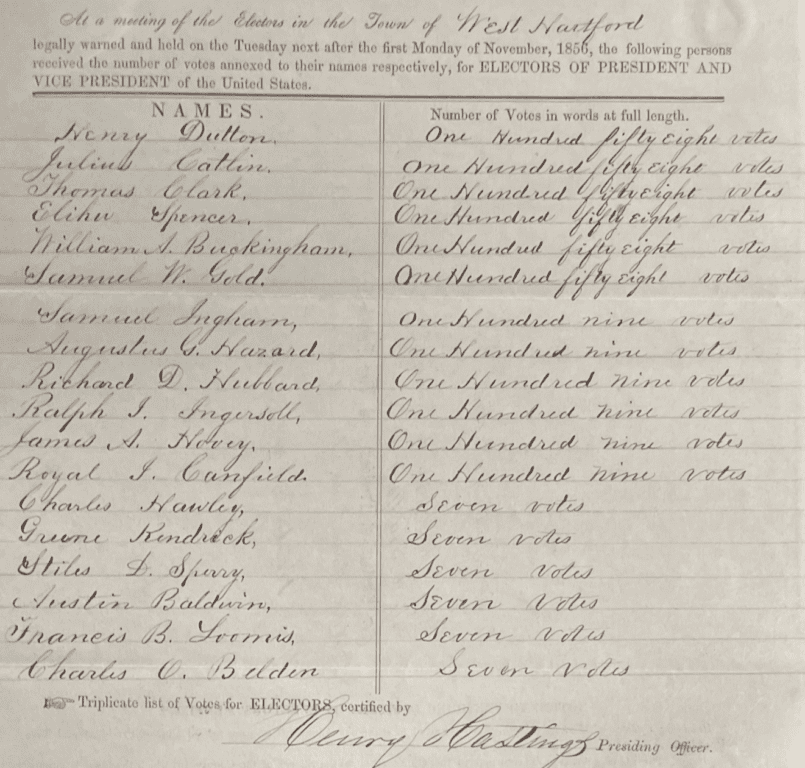 At a meeting of the Electors in the Town of West Hartford
legally warned and held on the Tuesday next after the first Monday of November, 1856, the following persons
received the number of votes annexed to their names respectively, for ELECTORS OF PRESIDENT AND
VICE PRESIDENT of the United States.
NAMES. Number of Votes in words at full length.
Henry Dutton. One Hundred fifty eight votes
Julius Catlin. One Hundred fifty eight votes
Thomas Clark. One Hundred fifty eight votes
Elihu Spencer. One Hundred fifty eight votes
William A. Buckingham, One Hundred fifty eight votes
Samuel W. Gold. One Hundred fifty eight votes
Samuel Ingham, One Hundred nine votes
Augustus G. Hazard, One Hundred nine votes
Richard D. Hubbard, One Hundred nine votes
Ralph I. Ingersoll, One Hundred nine votes
James A. Hovey. One Hundred nine votes
Royal I. Canfield. One Hundred nine votes
Charles Hawley, Seven votes
Greene Kendrick, Seven votes
Stiles D. Sperry, Seven votes
Austin Baldwin, Seven votes
Francis B. Loomis, Seven votes
Charles O. Belden Seven votes
☞ Triplicate list of Votes for ELECTORS, certified by
Henry Hastings Presiding Officer.